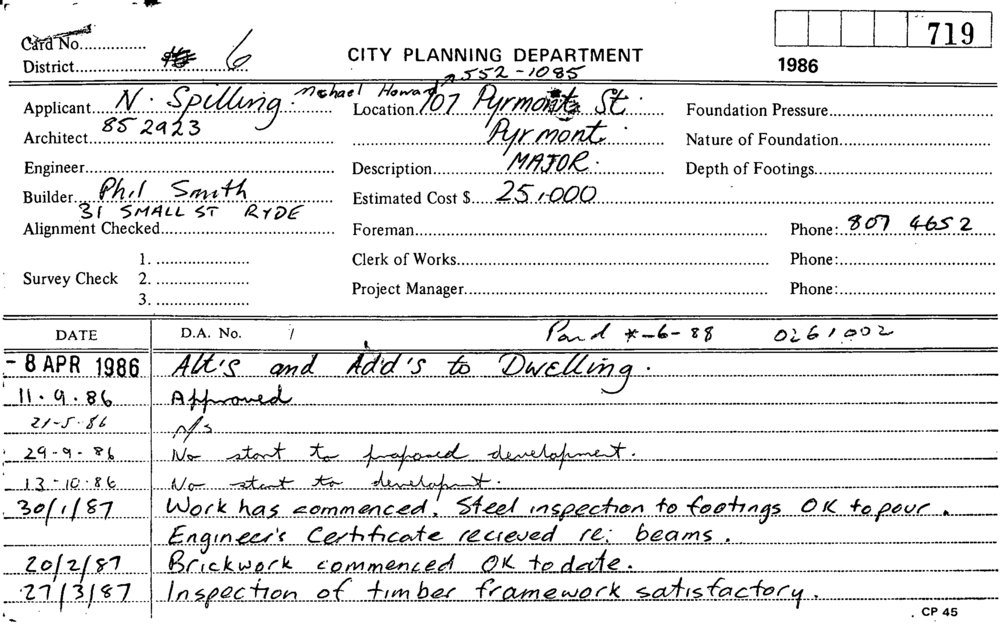 Card No.
719
District 6
CITY PLANNING DEPARTMENT
1986
552-1085
Michael Howard
Applicant N. Spilling
Location 107 Pyrmont St.
Foundation Pressure
85 2923
Architect
Pyrmont.
Nature of Foundation
Engineer
Description MAJOR.
Depth of Footings
Builder Phil Smith
Estimated Cost $ 25,000
31 SMALL ST RYDE
Alignment Checked
Foreman
Phone: 807 4652
Survey Check
1.
2.
3.
Clerk of Works
Phone:
Project Manager
Phone:
DATE
D.A. No.
-6-88 0261002
- 8 APR 1986 Alt's and Add's to Dwelling.
11.9.86 Approved
21-5-86 n/s
29-9-86 No start to proposed development.
13-10-86 No start to development.
30/1/87 Work has commenced. Steel inspection to footings OK to pour.
Engineer's Certificate recieved re: beams.
20/2/87 Brickwork commenced OK to date.
27/3/87 Inspection of timber framework satisfactory.
CP 45